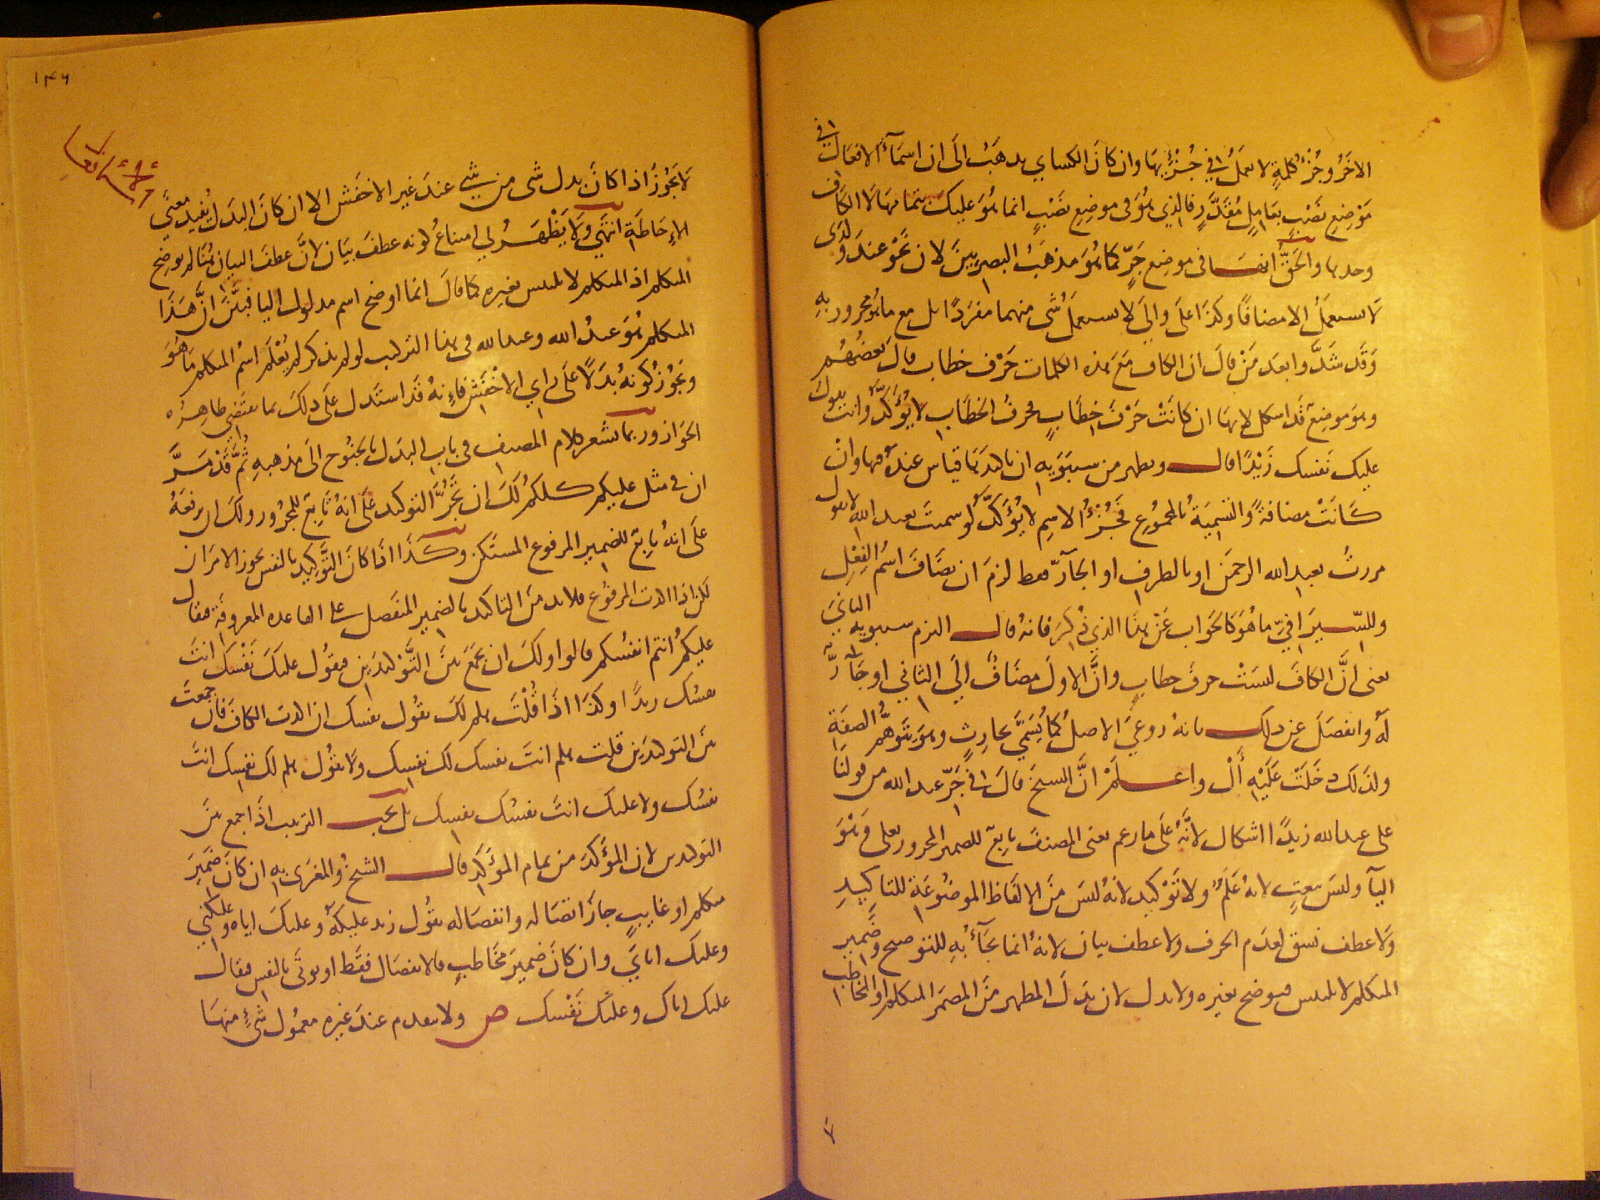 الاخر وجزء كلمة لا يعمل في جزئها وان كان الكساي يذهب الى ان اسماء الافعال في
موضع نصب بعامل مقدر فالذي هو في موضع نصب انما هو عليك بتمامها لا الكاف
وحدها والحق انها في موضع جر كما هو مذهب البصريين لان نحو عندك ولدى
لا يستعمل الا مضافا وكذا على والى لا يستعمل شى منهما مفردا بل مع ما هو مجرور به
وقد شذ وابعد من قال ان الكاف مع هذه الكلمات حرف خطاب قال بعضهم
وهو موضع قد اشكل لانها ان كانت حرف خطاب فحرف الخطاب لا يؤكد وانت تقول
عليك نفسك زيدا قال ويظهر من سيبويه ان تاكيدها قياس عنده فيها وان
كانت مضافة والتسمية بالمجموع فجزء الاسم لا يؤكد لو سميت بعبد الله لا تقول
مررت بعبد الله الرحمن او بالظرف او الجار فقط لزم ان يضاف اسم الفعل
وللسيرافي ما هو كالجواب عن هذا الذي ذكر فانه قال التزم سيبويه الثاني
يعنى ان الكاف ليست حرف خطاب وان الاول مضاف الى الثاني او جار
له وانفصل عن ذلك بانه روعي الاصل كما يسمى بحارث وهو يتوهم الصفة
ولذلك دخلت عليه أل واعلم ان الشيخ قال في جر عبد الله من قولنا
على عبد الله زيدا اشكال لانه على ما زعم يعنى المصنف تابع للضمير المجرور بعلى وهو
اليا وليس بنعت لانه علم ولا توكيد لانه ليس من الالفاظ الموضوعة للتاكيد
ولا عطف نسق لعدم الحرف ولا عطف بيان لانه انما يجاء به للتوضيح وضمير
المتكلم لا يلبس فيوضح بغيره ولا بدل لان بدل المظهر من المضمر المتكلم او المخاطب
١٤٦
اسماء الافعال
لا يجوز اذا كان بدل شى من شي عند غير الاخفش الا ان كان البدل يفيد معنى
الاحاطة انتهى ولا يظهر لي امتناع كونه عطف بيان لان عطف البيان هنا لم يوضح
المتكلم اذ المتكلم لا يلبس بغيره كما قال انما اوضح اسم مدلول اليا فبين ان هذا
المتكلم هو عبد الله وعبد الله في هذا التركيب لو لم يذكر لم يعلم اسم المتكلم ما هو
ويجوز كونه بدلا على راي الاخفش فانه قد استدل على ذلك بما يقتضي ظاهره
الجواز وربما يشعر كلام المصنف في باب البدل بالجنوح الى مذهبه ثم قد مر
ان في مثل عليكم كلكم لك ان تجر التوكيد على انه تابع للمجرور ولك ان ترفعه
على انه تابع للضمير المرفوع المستكن وكذا اذا كان التوكيد بالنفس يجوز الامران
لكن اذا اكدت المرفوع فلا بد من التاكيد بالضمير المنفصل على القاعده المعروفة فتقول
عليكم انتم انفسكم قالوا ولك ان تجمع بين التوكيدين فتقول عليك نفسك انت
نفسك زيدا وكذا اذا قلت هلم لك تقول نفسك ان اكدت الكاف فان جمعت
بين التوكيدين قلت هلم انت نفسك لك نفسك ولا تقول هلم لك نفسك انت
نفسك ولا عليك انت نفسك نفسك بل يجب الترتيب اذا جمع بين
التوكيدين لان المؤكد من تمام المؤكد قال الشيخ والمغرى به ان كان ضمير
متكلم او غايب جاز اتصاله وانفصاله تقول زيد عليكه وعليك اياه وعليكني
وعليك اياي وان كان ضمير مخاطب فالانفصال فقط او يوتى بالنفس فيقال
عليك اياك وعليك نفسك ص ولا يتقدم عند غيره معمول شي منها
٧